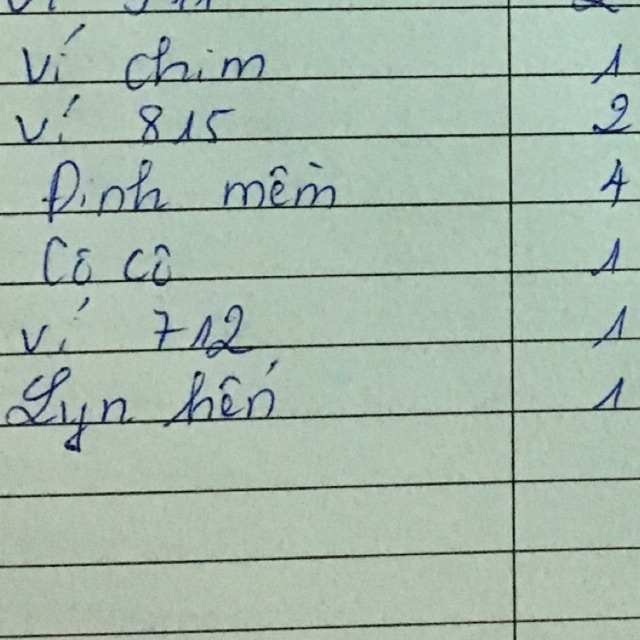 ví chim 1
ví 815 2
Đinh mềm 4
Cô cô 1
ví 712 1
Lyn hến 1